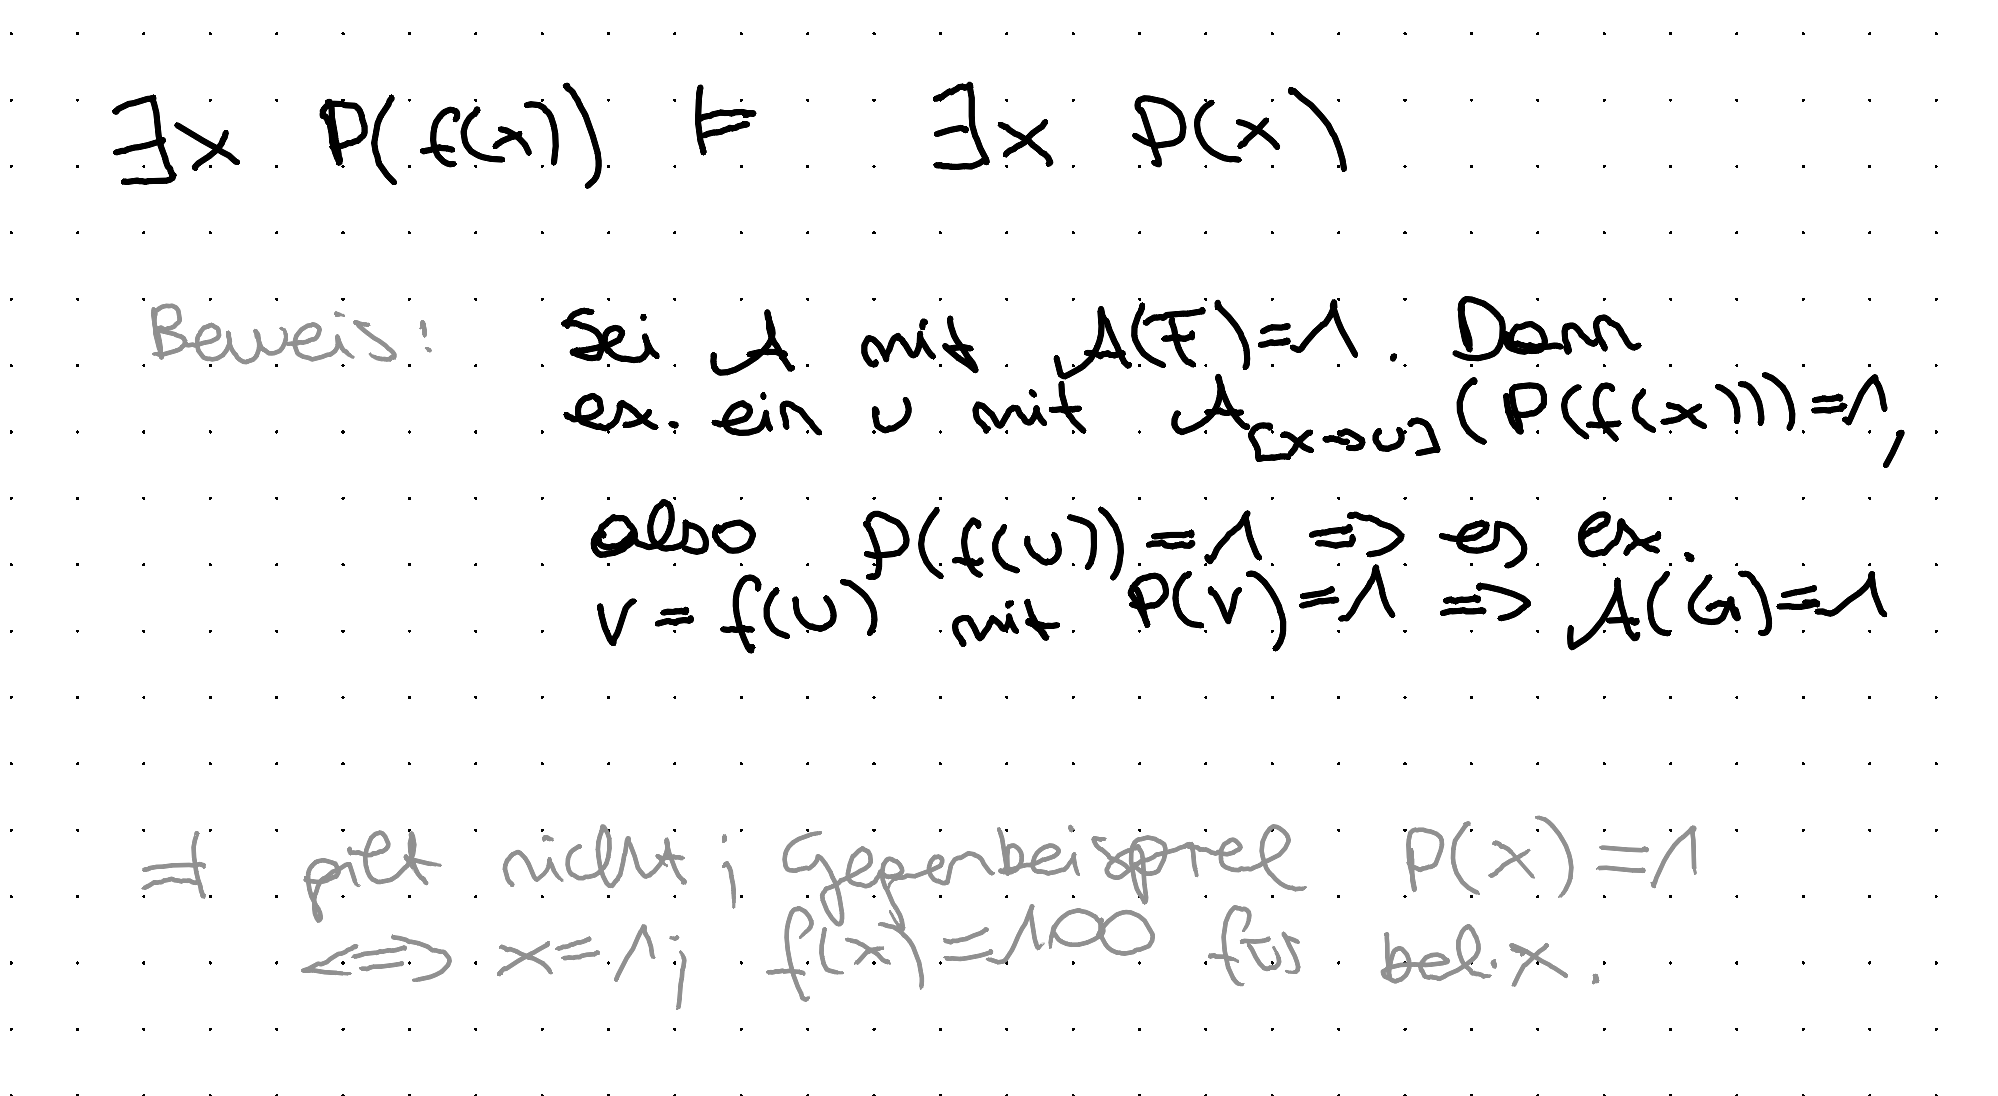 ∃x P(f(x)) ⊨ ∃x P(x)
Beweis: Sei 𝒜 mit 𝒜(F)=1. Dann
ex. ein u mit 𝒜[x→u](P(f(x)))=1,
also P(f(u))=1 => es ex.
v = f(u) mit P(v)=1 => 𝒜(G)=1
⫤ gilt nicht; Gegenbeispiel P(x)=1
<=> x=1; f(x)=100 für bel. x.